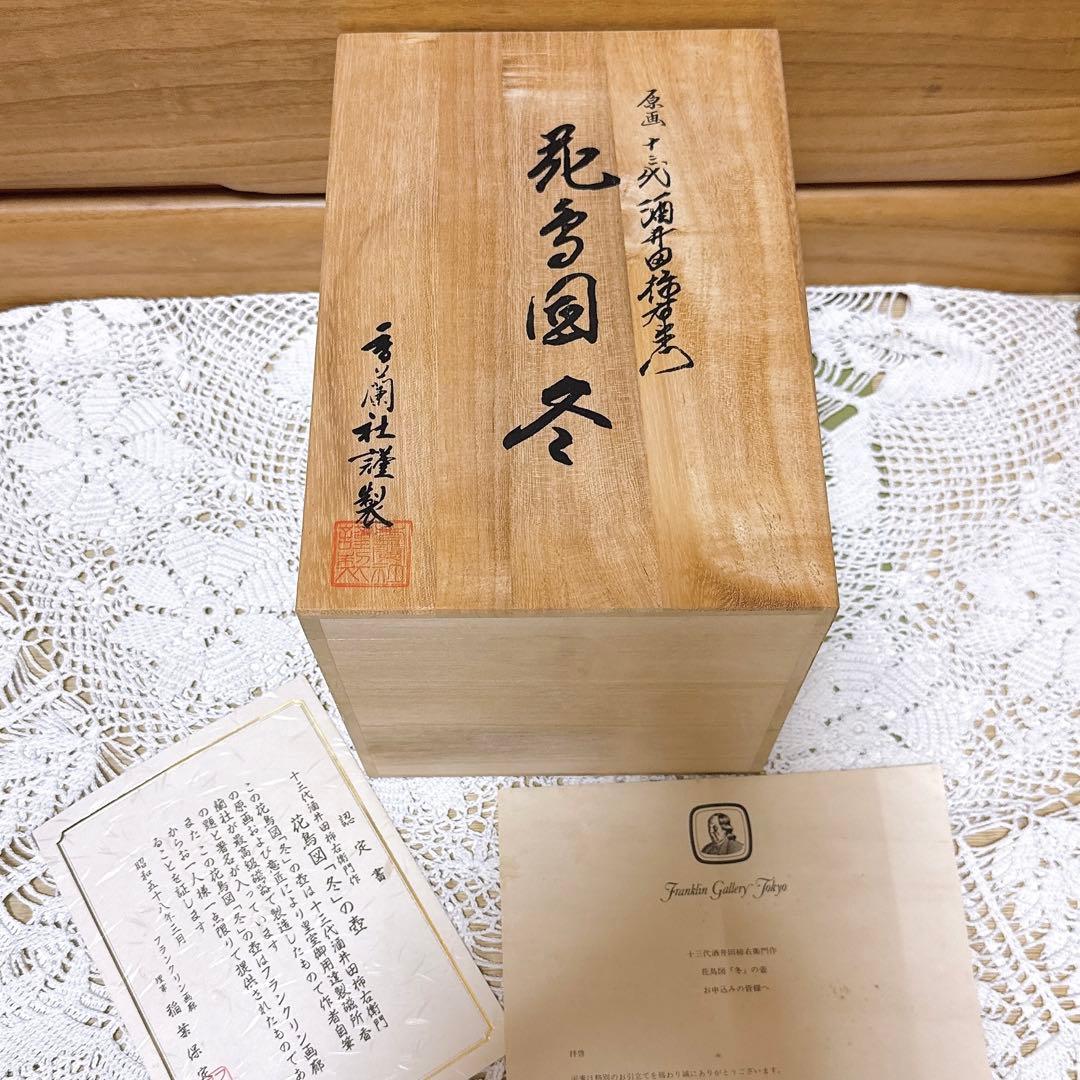 原画 十三代 酒井田柿右衛門
花鳥図 冬
香蘭社謹製
認定書
十三代酒井田柿右衛門作
花鳥図「冬」の壺
この花鳥図「冬」の壺は十三代酒井田柿右衛門
の原画および意匠により皇室御用達製磁所香
蘭社が最高級磁器で製造したもので作者自筆
の題と署名が入っています
また、この花鳥図「冬」の壺はフランクリン画廊
からお一人様一点限りで提供されたものであ
ることを証します
昭和五十八年三月
フランクリン画廊
理事 稲葉保
Franklin Gallery Tokyo
十三代酒井田柿右衛門作
花鳥図『冬』の壷
お申込みの皆様へ
拝啓
平素は格別のお引立てを賜わり誠にありがとうございます。